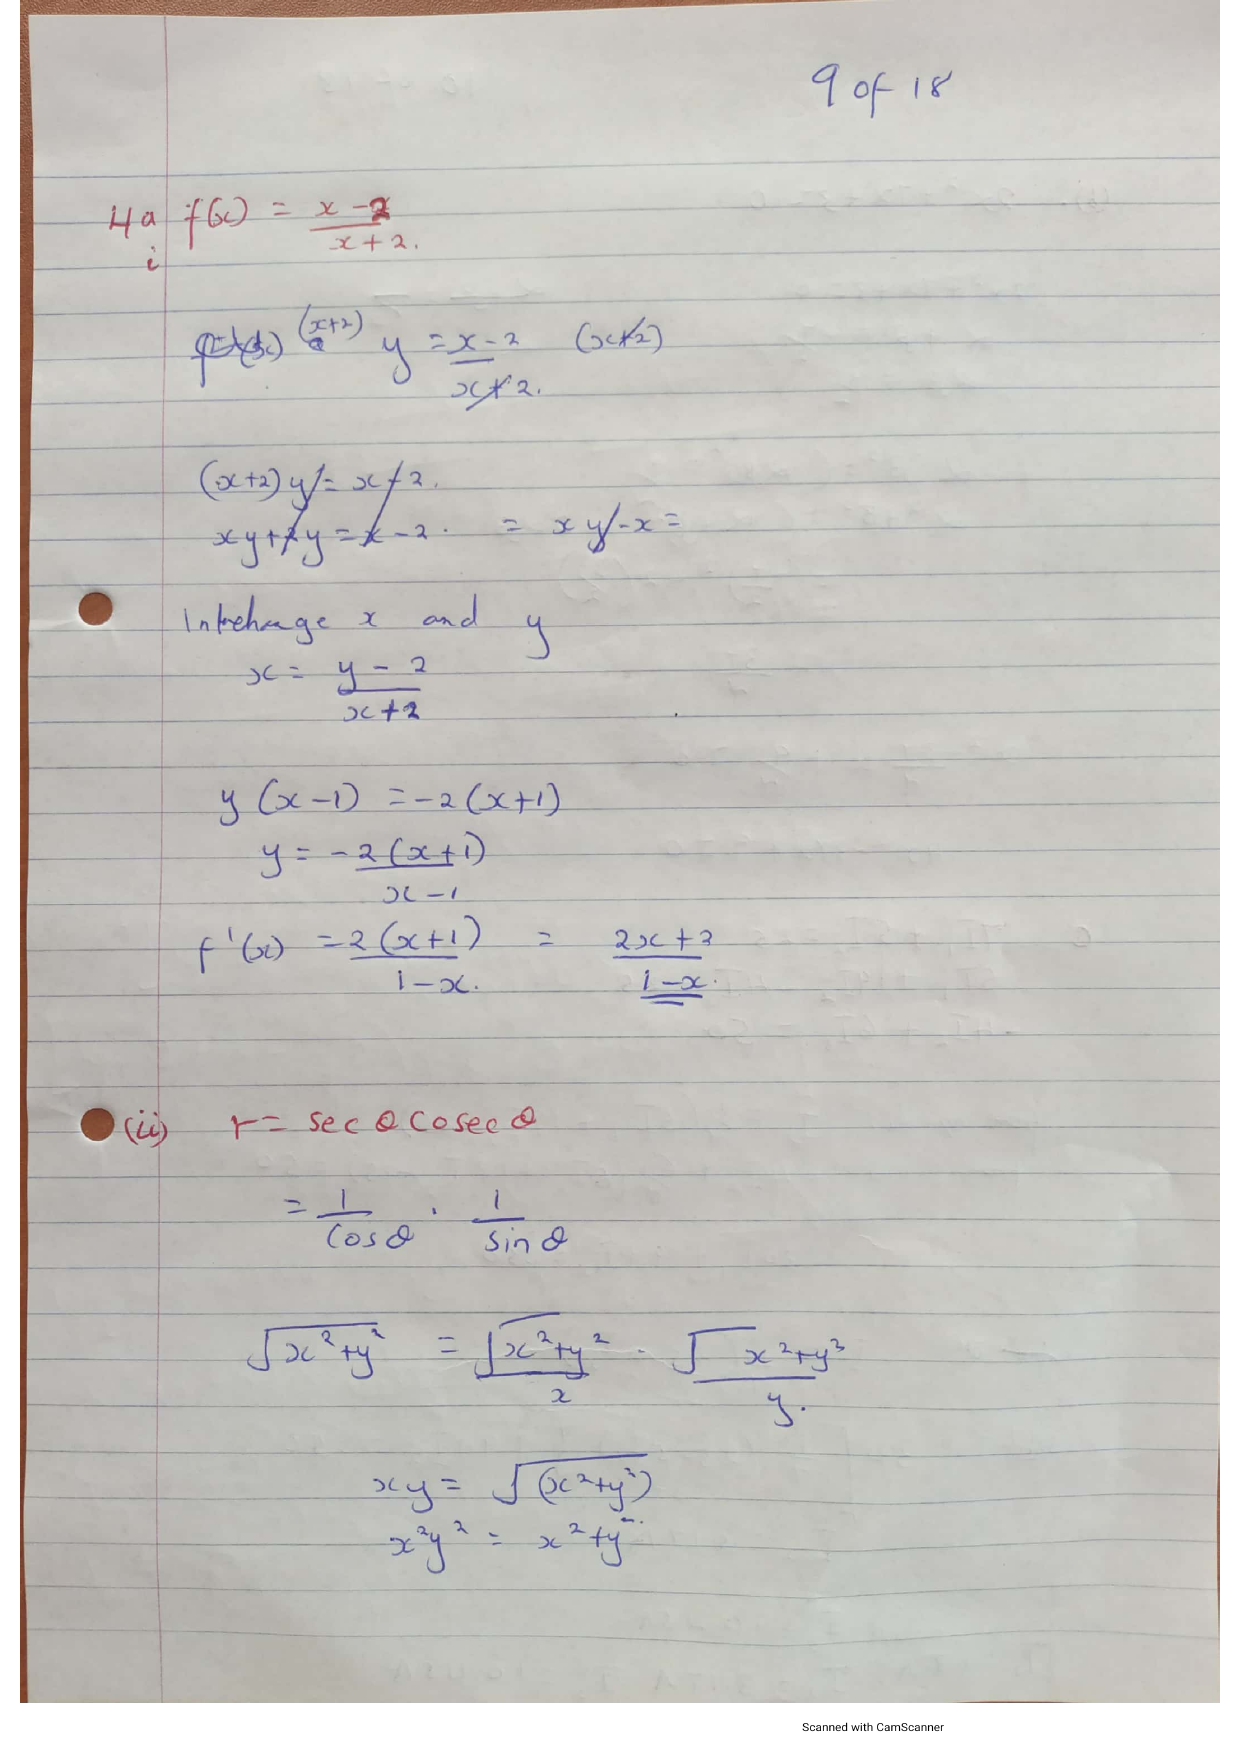 9 of 18
4a f(x) = x - 2 / x + 2.
i
(x+2) y = x - 2 / x + 2. (x+2)
(x+2) y = x - 2.
xy + 2y = x - 2. = xy - x =
Interchange x and y
x = y - 2 / x + 2
y (x - 1) = -2 (x + 1)
y = -2 (x + 1) / x - 1
f'(x) = 2 (x + 1) / 1 - x. = 2x + 2 / 1 - x.
(ii) r = sec θ cosec θ
= 1 / Cos θ . 1 / Sin θ
√x²+y² = √x²+y² / x . √x²+y² / y.
xy = √(x²+y²)
x²y² = x²+y²
Scanned with CamScanner